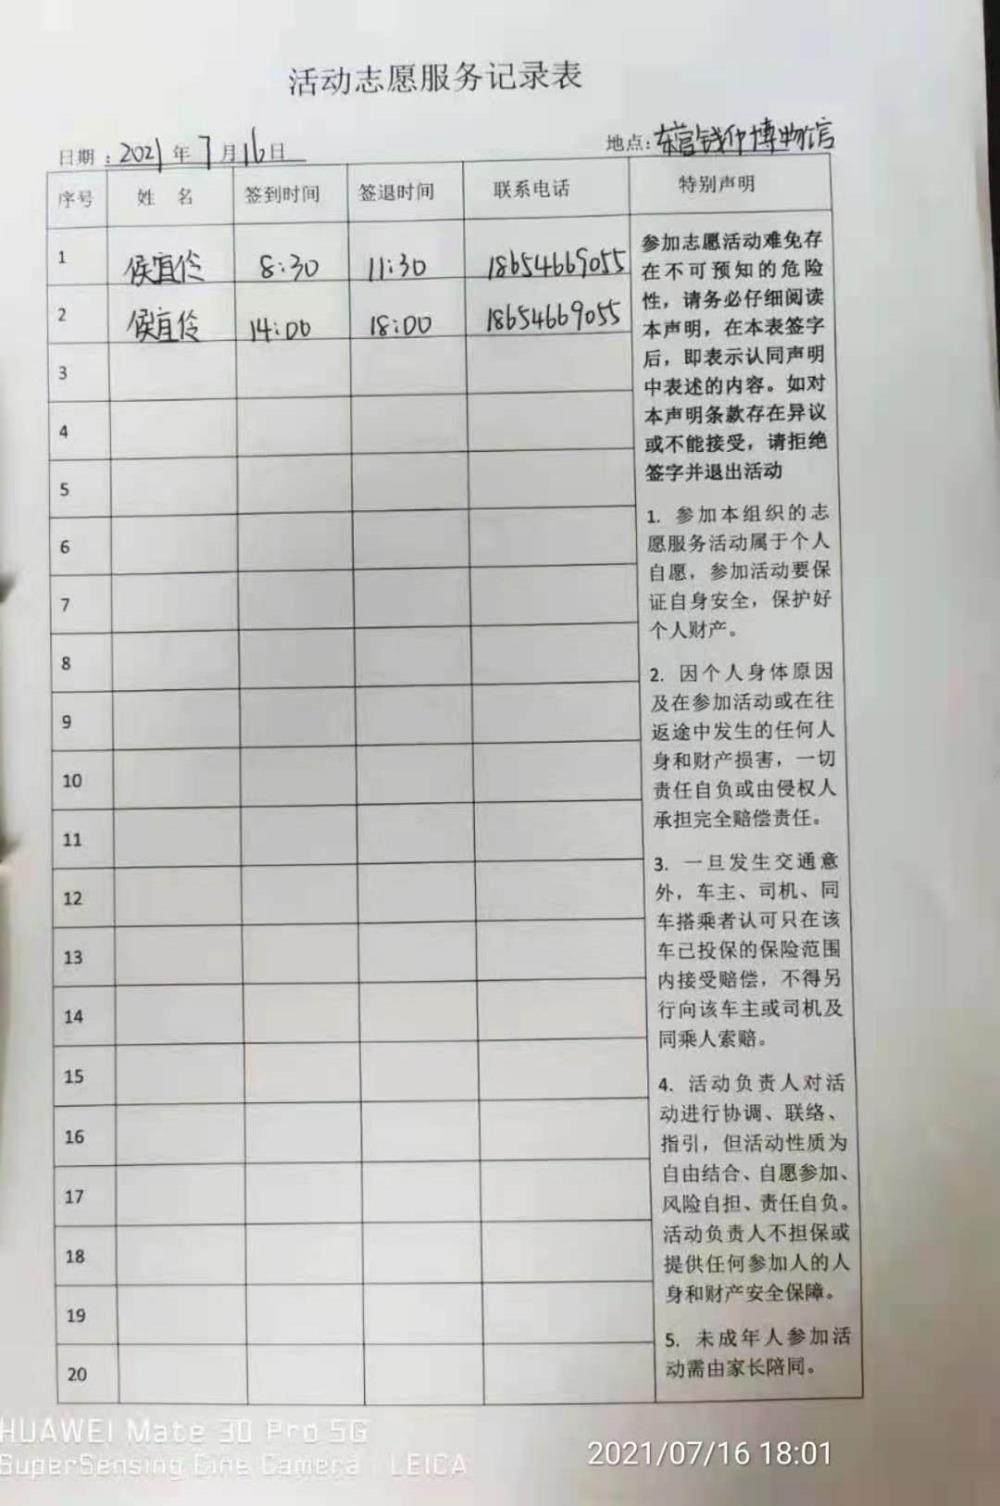 活动志愿服务记录表
日期：2021年7月16日
地点：东营钱币博物馆
序号 姓 名 签到时间 签退时间 联系电话 特别声明
1 侯宜伶 8:30 11:30 18654669055
2 侯宜伶 14:00 18:00 18654669055
3
4
5
6
7
8
9
10
11
12
13
14
15
16
17
18
19
20
参加志愿活动难免存
在不可预知的危险
性，请务必仔细阅读
本声明，在本表签字
后，即表示认同声明
中表述的内容。如对
本声明条款存在异议
或不能接受，请拒绝
签字并退出活动
1. 参加本组织的志
愿服务活动属于个人
自愿，参加活动要保
证自身安全，保护好
个人财产。
2. 因个人身体原因
及在参加活动或在往
返途中发生的任何人
身和财产损害，一切
责任自负或由侵权人
承担完全赔偿责任。
3. 一旦发生交通意
外，车主、司机、同
车搭乘者认可只在该
车已投保的保险范围
内接受赔偿，不得另
行向该车主或司机及
同乘人索赔。
4. 活动负责人对活
动进行协调、联络、
指引，但活动性质为
自由结合、自愿参加、
风险自担、责任自负。
活动负责人不担保或
提供任何参加人的人
身和财产安全保障。
5. 未成年人参加活
动需由家长陪同。
HUAWEI Mate 30 Pro 5G
SuperSensing Cine Camera | LEICA
2021/07/16 18:01